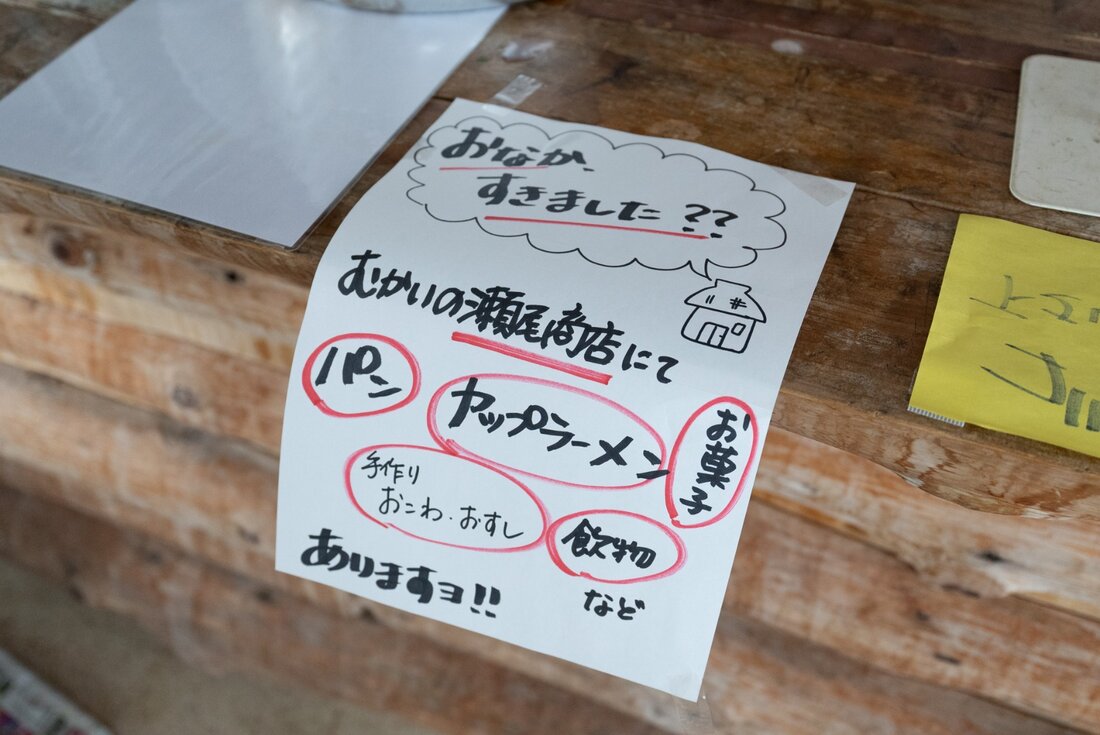 おなか、
すきました??
むかいの瀬尾商店にて
パン
カップラーメン
お菓子
手作り
おこわ・おすし
飲物
など
ありますヨ!!